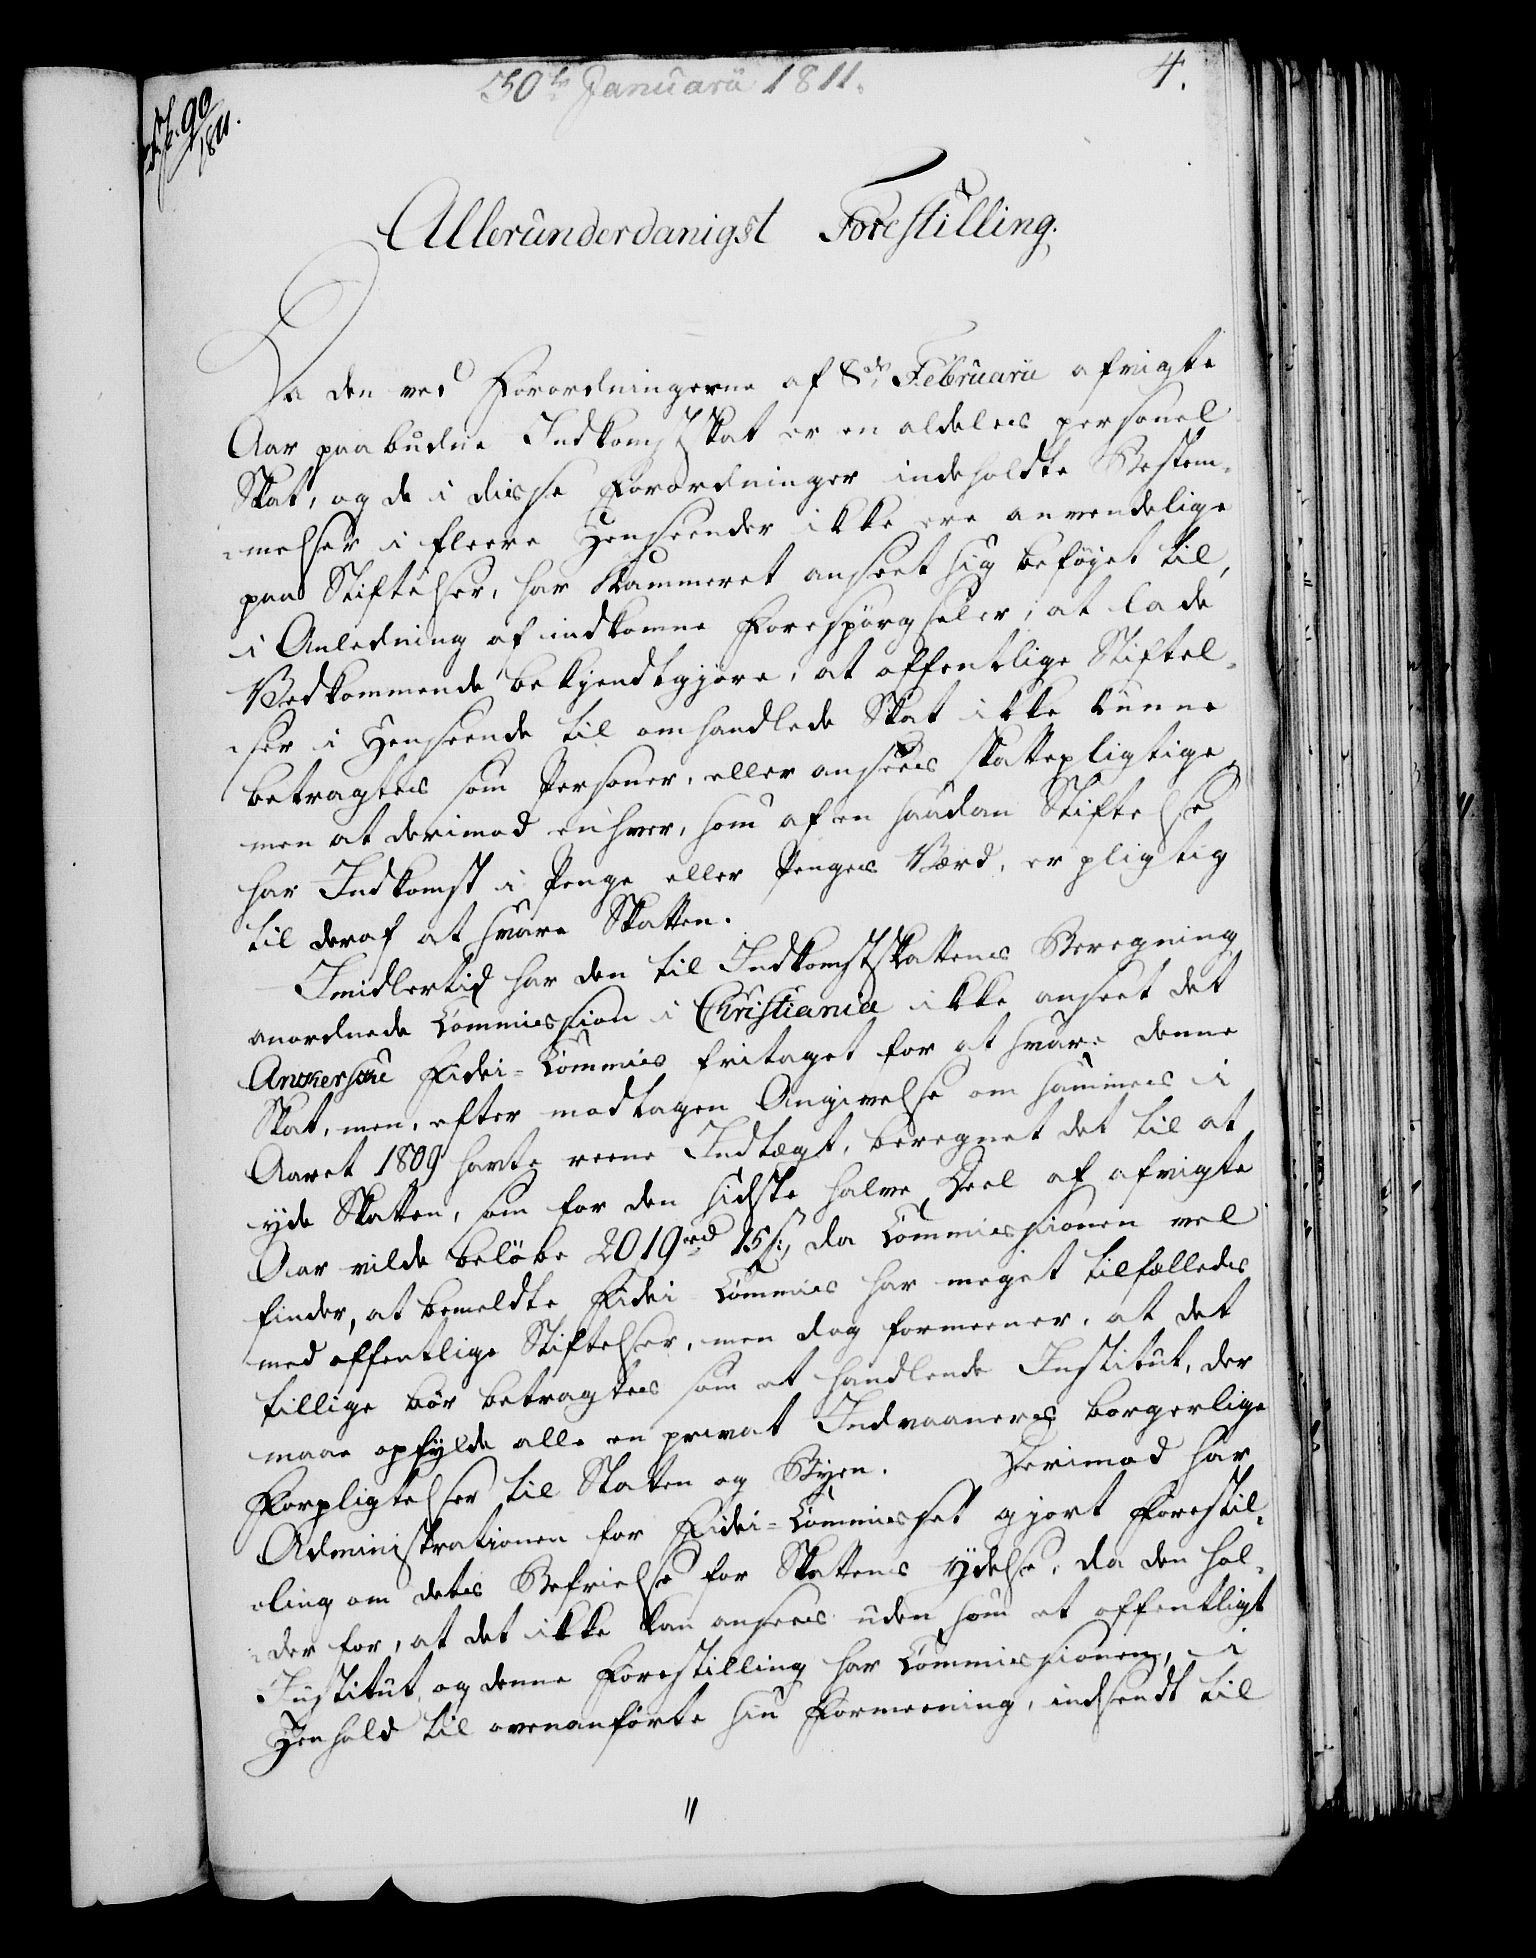 30te Januarii 1811.
4.
90
1811.
Allerunderdanigst Forestilling.
Da den ved Forordningerne af 8de Februarii afvigte
Aar paabudne Indkomstskat er en aldeles personel
Skat, og de i disse Forordninger indeholdte Bestem-
-melser i fleere Henseender ikke ere anvendelige
paa Stiftelser, har Kammeret anseet sig beføjet til,
i Anledning af indkomne Forespørgseler, at lade
Vedkommende bekjendtgjøre, at offentlige Stiftel-
-ser i Henseende til omhandlede Skat ikke kunne
betragtes som Personer, eller ansees skattepligtige,
men at derimod enhver, som af en saadan Stiftelse
har Indkomst i Penge eller Penges Værd, er pligtig
til deraf at svare Skatten.
Imidlertid har den til Indkomstskattens Beregning
anordnede Commission i Christiania ikke anseet det
Ankerske Fidei-Commis fritaget for at svare denne
Skat, men, efter modtagen Angivelse om sammes i
Aaret 1809 havte reene Indtægt, beregnet det til at
yde Skatten, som for den sidste halve Deel af afvigte
Aar vilde beløbe 2019 rd 15 s:, da Commissionen vel
finder, at bemeldte Fidei-Commis har meget tilfælleds
med offentlige Stiftelser, men dog formeener, at det
tillige bør betragtes som et handlende Institut, der
maae opfylde alle en privat Indvaaneres borgerlige
Forpligtelser til Staten og Byen. Derimod har
Administrationen for Fidei-Commisset gjort Forestil-
-ling om dets Befrielse for Skattens Ydelse, da den hol-
-der for, at det ikke kan ansees uden som et offentligt
Institut, og denne Forestilling har Commissionen, i
Henhold til ovenanførte sin Formeening, indsendt til